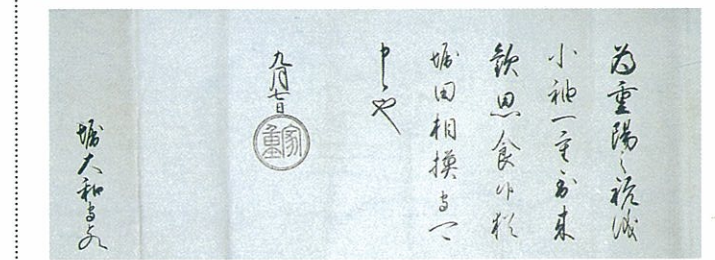 為重陽之祝儀
小袖一重到来
歓思食候猶
堀田相模守可
申也
九月七日
家重
堀大和守とのへ